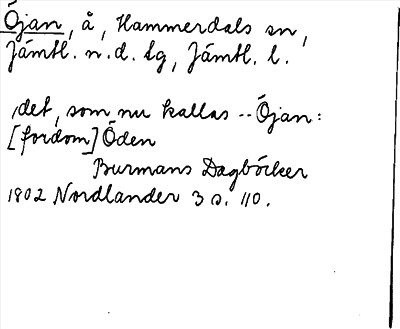 Öjan, å, Hammerdals sn,
Jämtl. n. d. tg, Jämtl. l.
det, som nu kallas -- Öjan:
[fordom] Öden
Burmans Dagböcker
1802 Nordlander 3 s. 110.